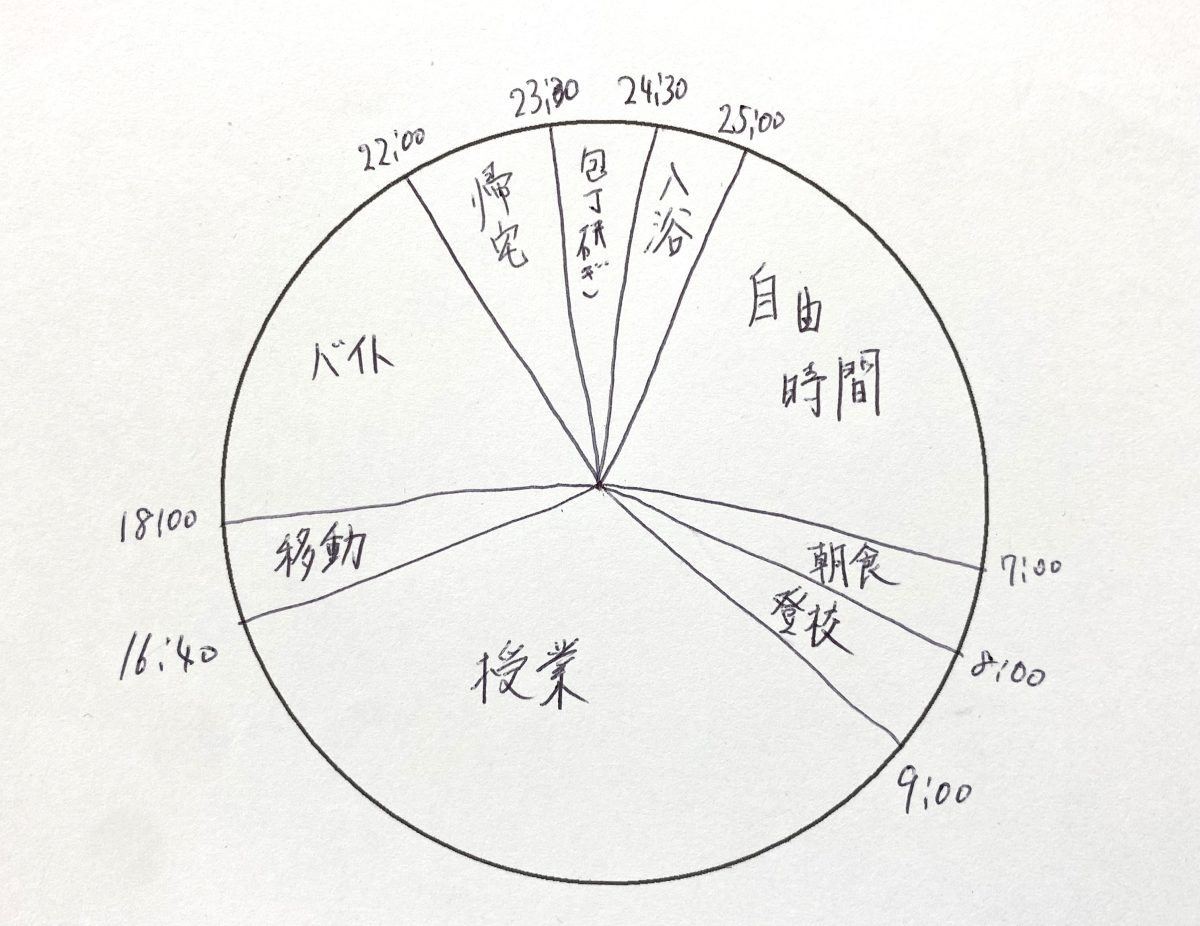 23:30
24:30
25:00
22:00
帰宅
包丁研ぎ
入浴
自由
時間
バイト
18:00
移動
朝食
7:00
登校
8:00
16:40
授業
9:00